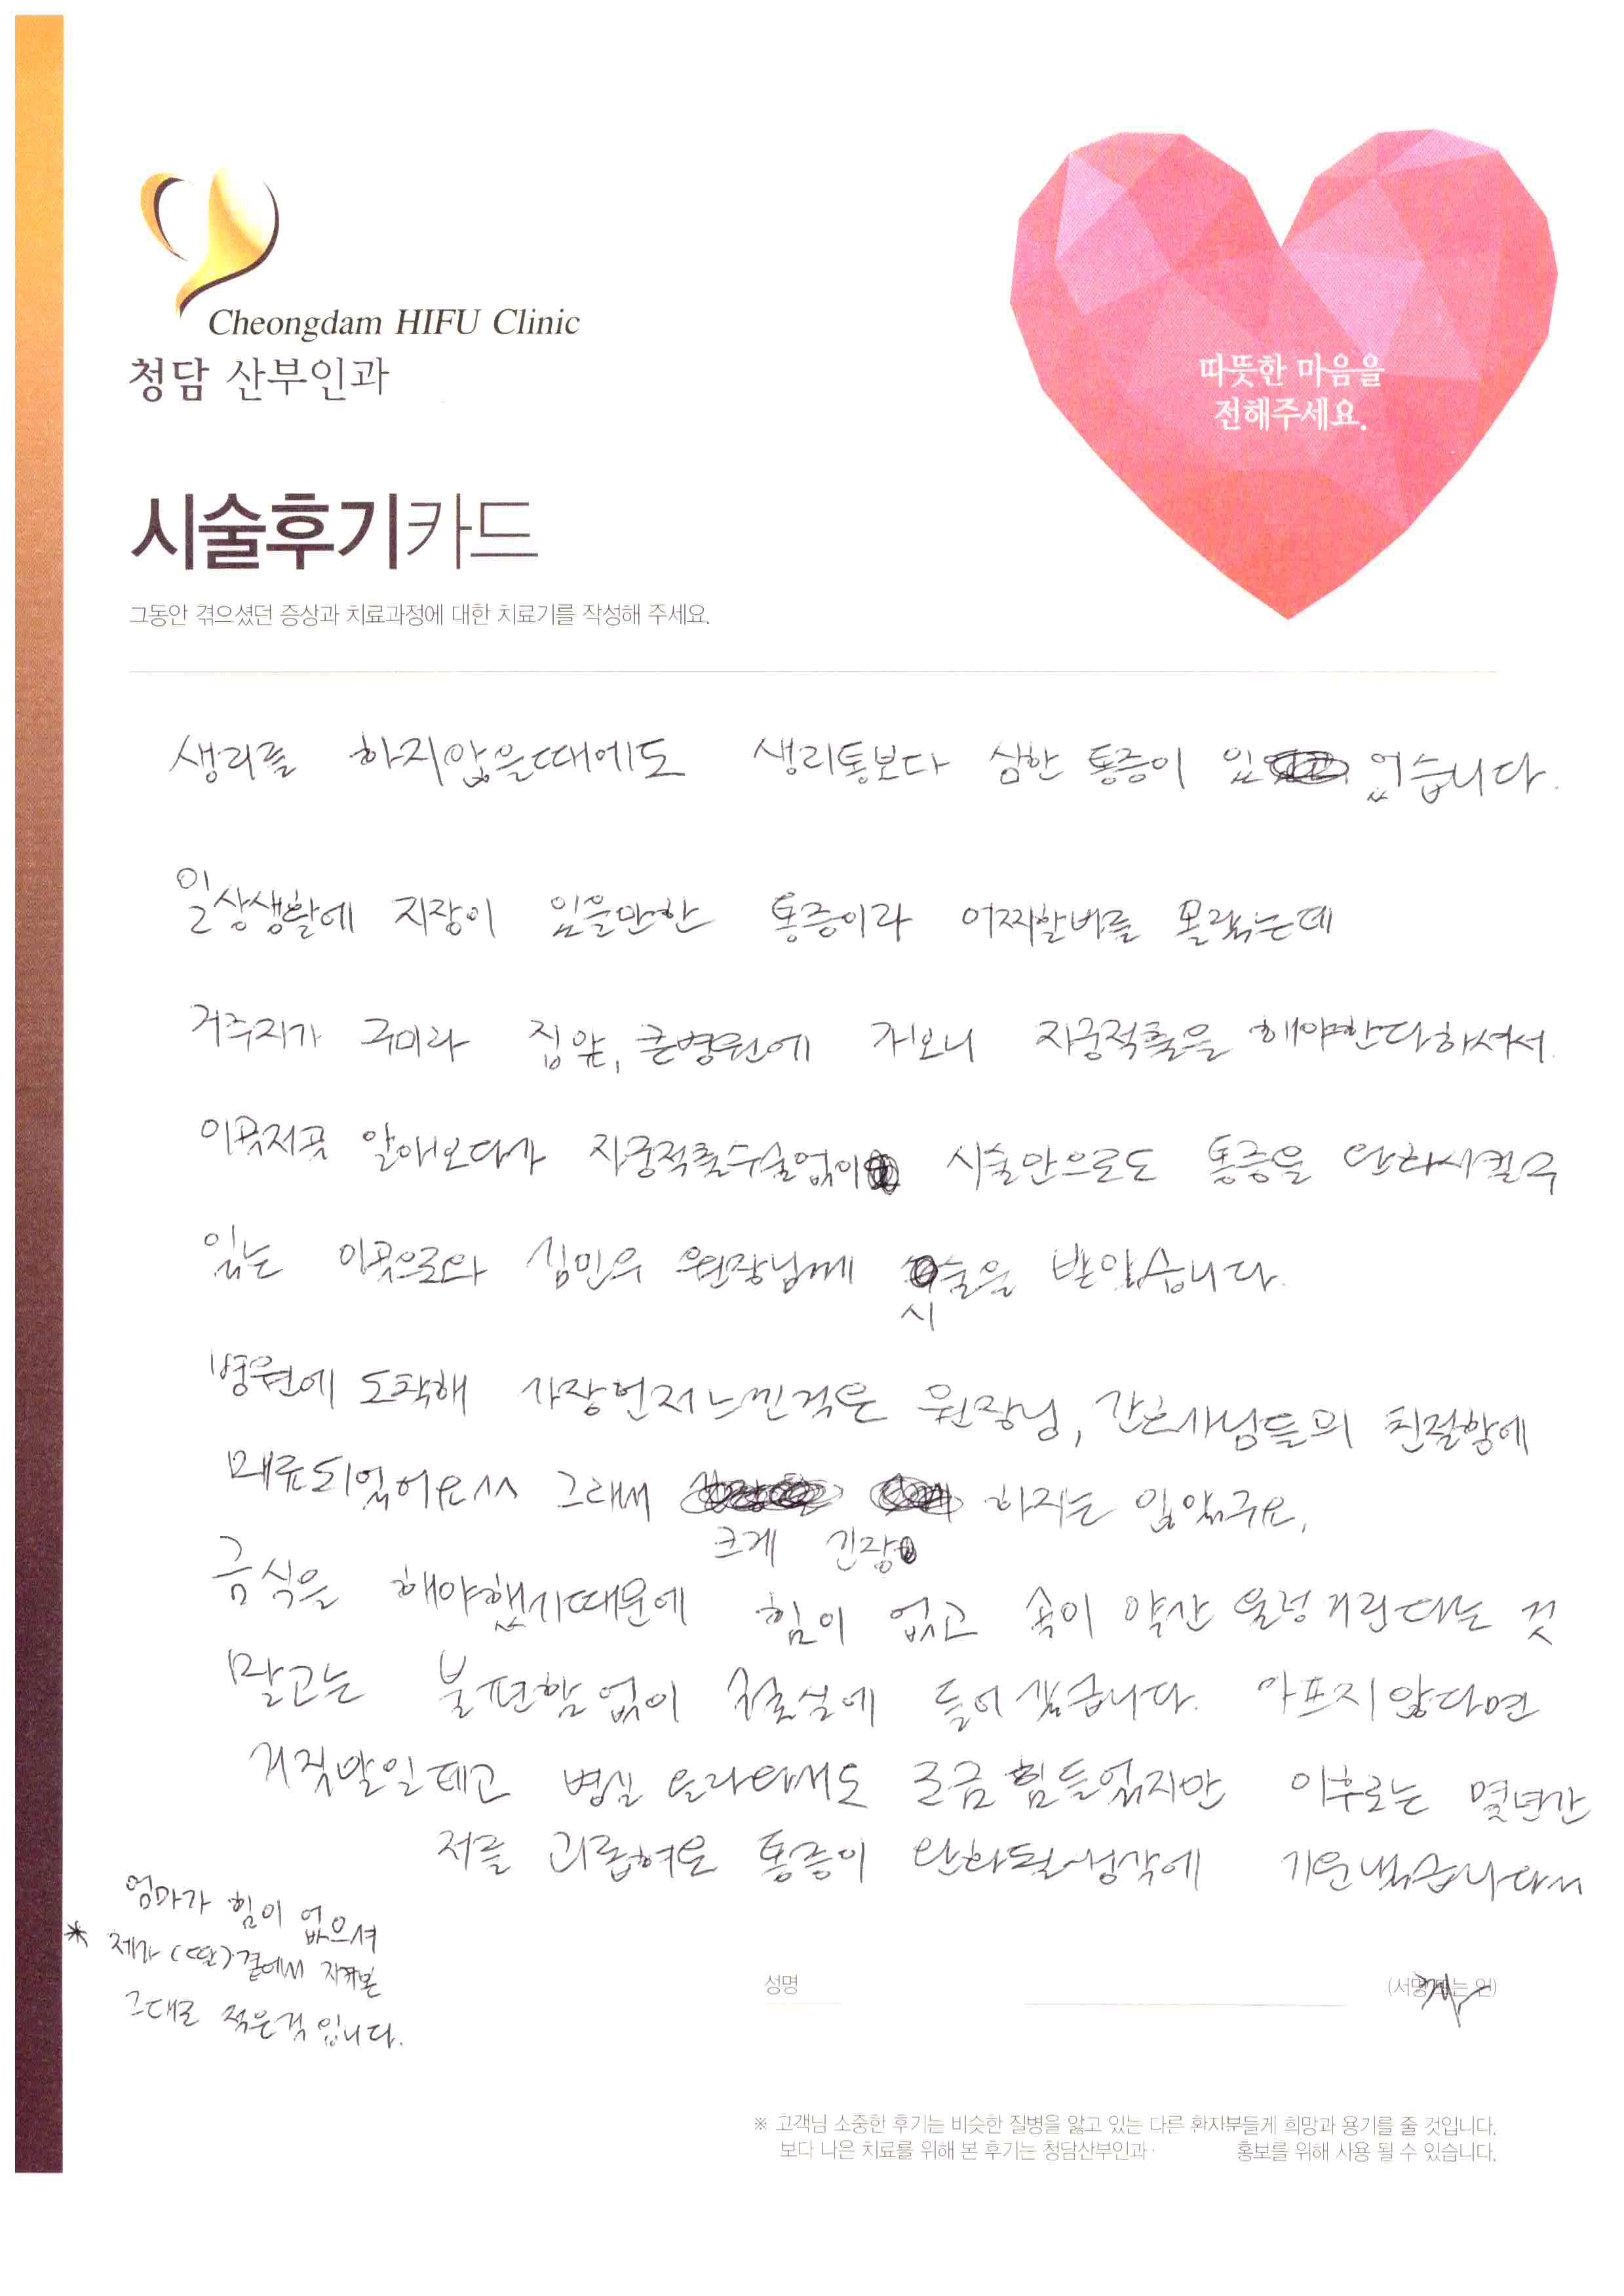 Cheongdam HIFU Clinic
청담 산부인과
따뜻한 마음을
전해주세요.
시술후기카드
그동안 겪으셨던 증상과 치료과정에 대한 치료기를 작성해 주세요.
생리를 하지않을때에도 생리통보다 심한 통증이 있 었습니다.
일상생활에 지장이 있을만한 통증이라 어찌할바를 몰랐는데
거주지가 구미라 집앞, 큰병원에 가보니 자궁적출을 해야한다하셔서
이곳저곳 알아보다가 자궁적출수술없이 시술만으로도 통증을 완화시킬수
있는 이곳으로와 심민우 원장님께 시술을 받았습니다.
병원에 도착해 가장먼저느낀것은 원장님, 간호사님들의 친절함에
매료되었어요^^ 그래서 크게 긴장 하지는 않았구요,
금식을 해야했기때문에 힘이 없고 속이 약간 울렁거린다는 것
말고는 불편함없이 들어갔습니다. 아프지않다면
거짓말일테고 병실 올라와서도 조금힘들었지만 이후로는 몇년간
저를 괴롭혀온 통증이 완화될생각에 기운냈습니다^^
엄마가 힘이 없으셔
* 제가 (딸) 곁에서 지켜본
그대로 적은것 입니다.
성명 (서명 또는 인)
※ 고객님 소중한 후기는 비슷한 질병을 앓고 있는 다른 환자부들게 희망과 용기를 줄 것입니다.
보다 나은 치료를 위해 본 후기는 청담산부인과· 홍보를 위해 사용 될 수 있습니다.